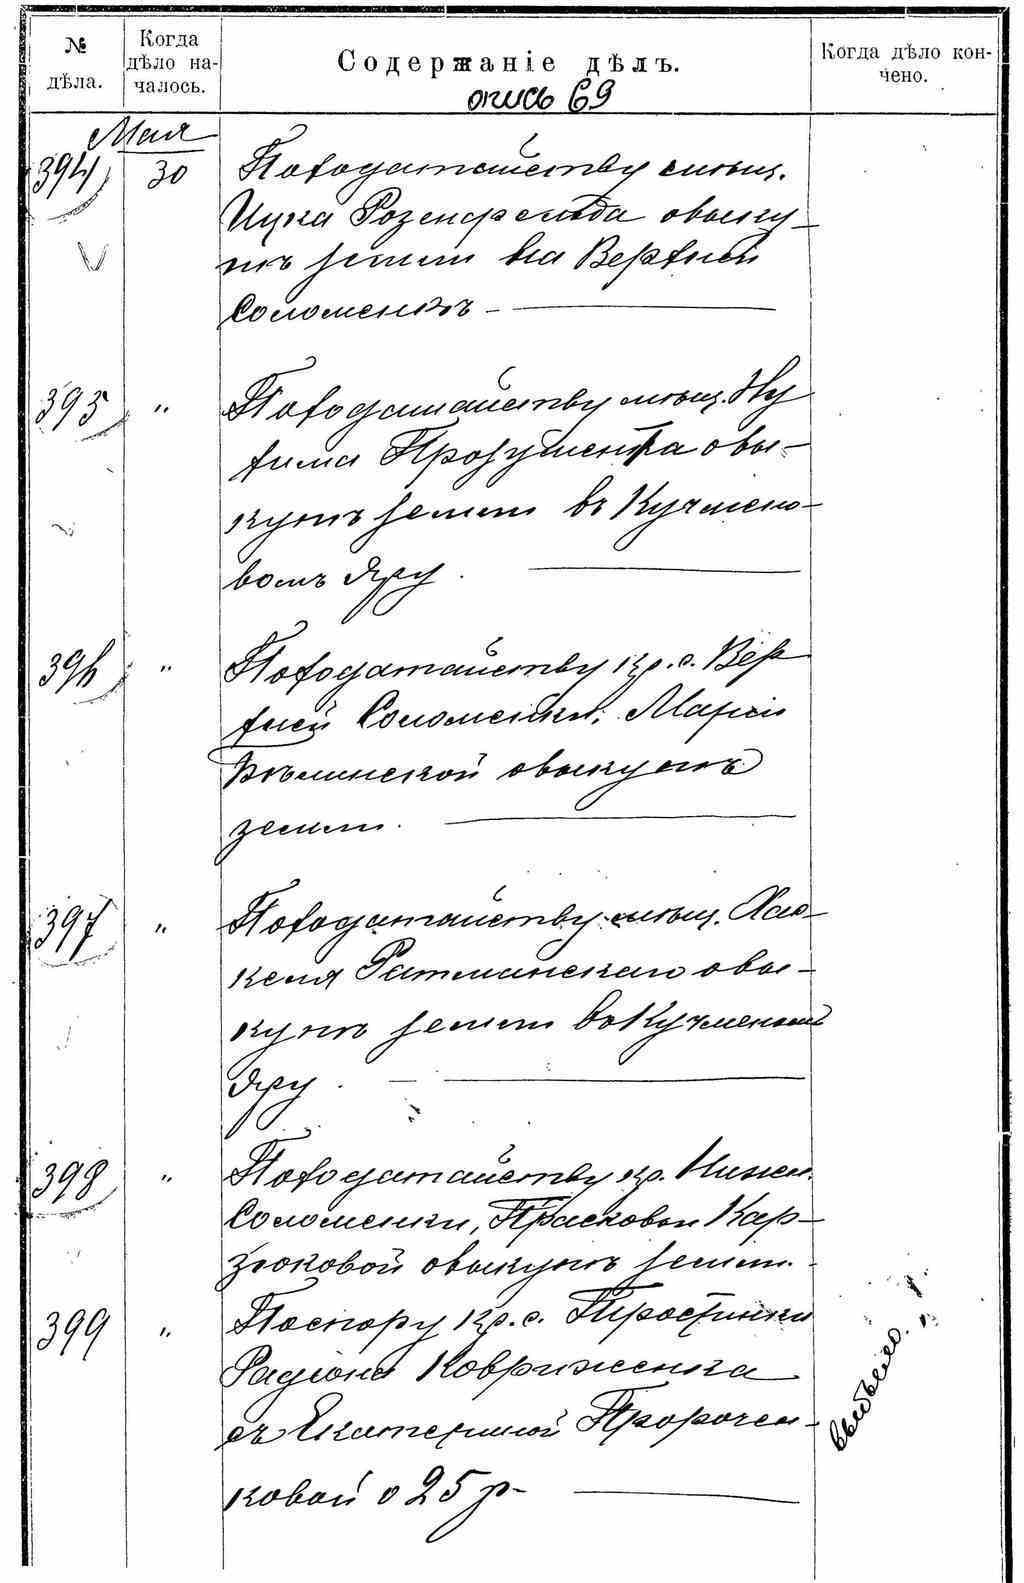 № дѣла.
Когда дѣло на-чалось.
Содержаніе дѣлъ.
Когда дѣло кон-чено.
опись 69
Мая
394 30 По ходатайству мѣщ.
Ицка Розенфельда о выку-
пѣ земли на Верхней
Соломенкѣ -
395 " По ходатайству мѣщ. Ну
хима Прозумента о вы-
купѣ земли въ Кучмено-
вомъ Яру.
396 " По ходатайству кр. с. Вер
хней Соломенки, Маріи
Бѣлинской о выкупѣ
земли.
397 " По ходатайству мѣщ. Хас-
келя Ратманскаго о вы-
купѣ земли въ Кучменомъ
Яру.
398 " По ходатайству кр. Нижн.
Соломенки, Прасковьи Кар-
зюковой о выкупѣ земли.
399 " По спору кр. с. Тростинки
Радіона Ковриженка
съ Екатериной Пророчен-
ковой о 25 р -
выбыло.